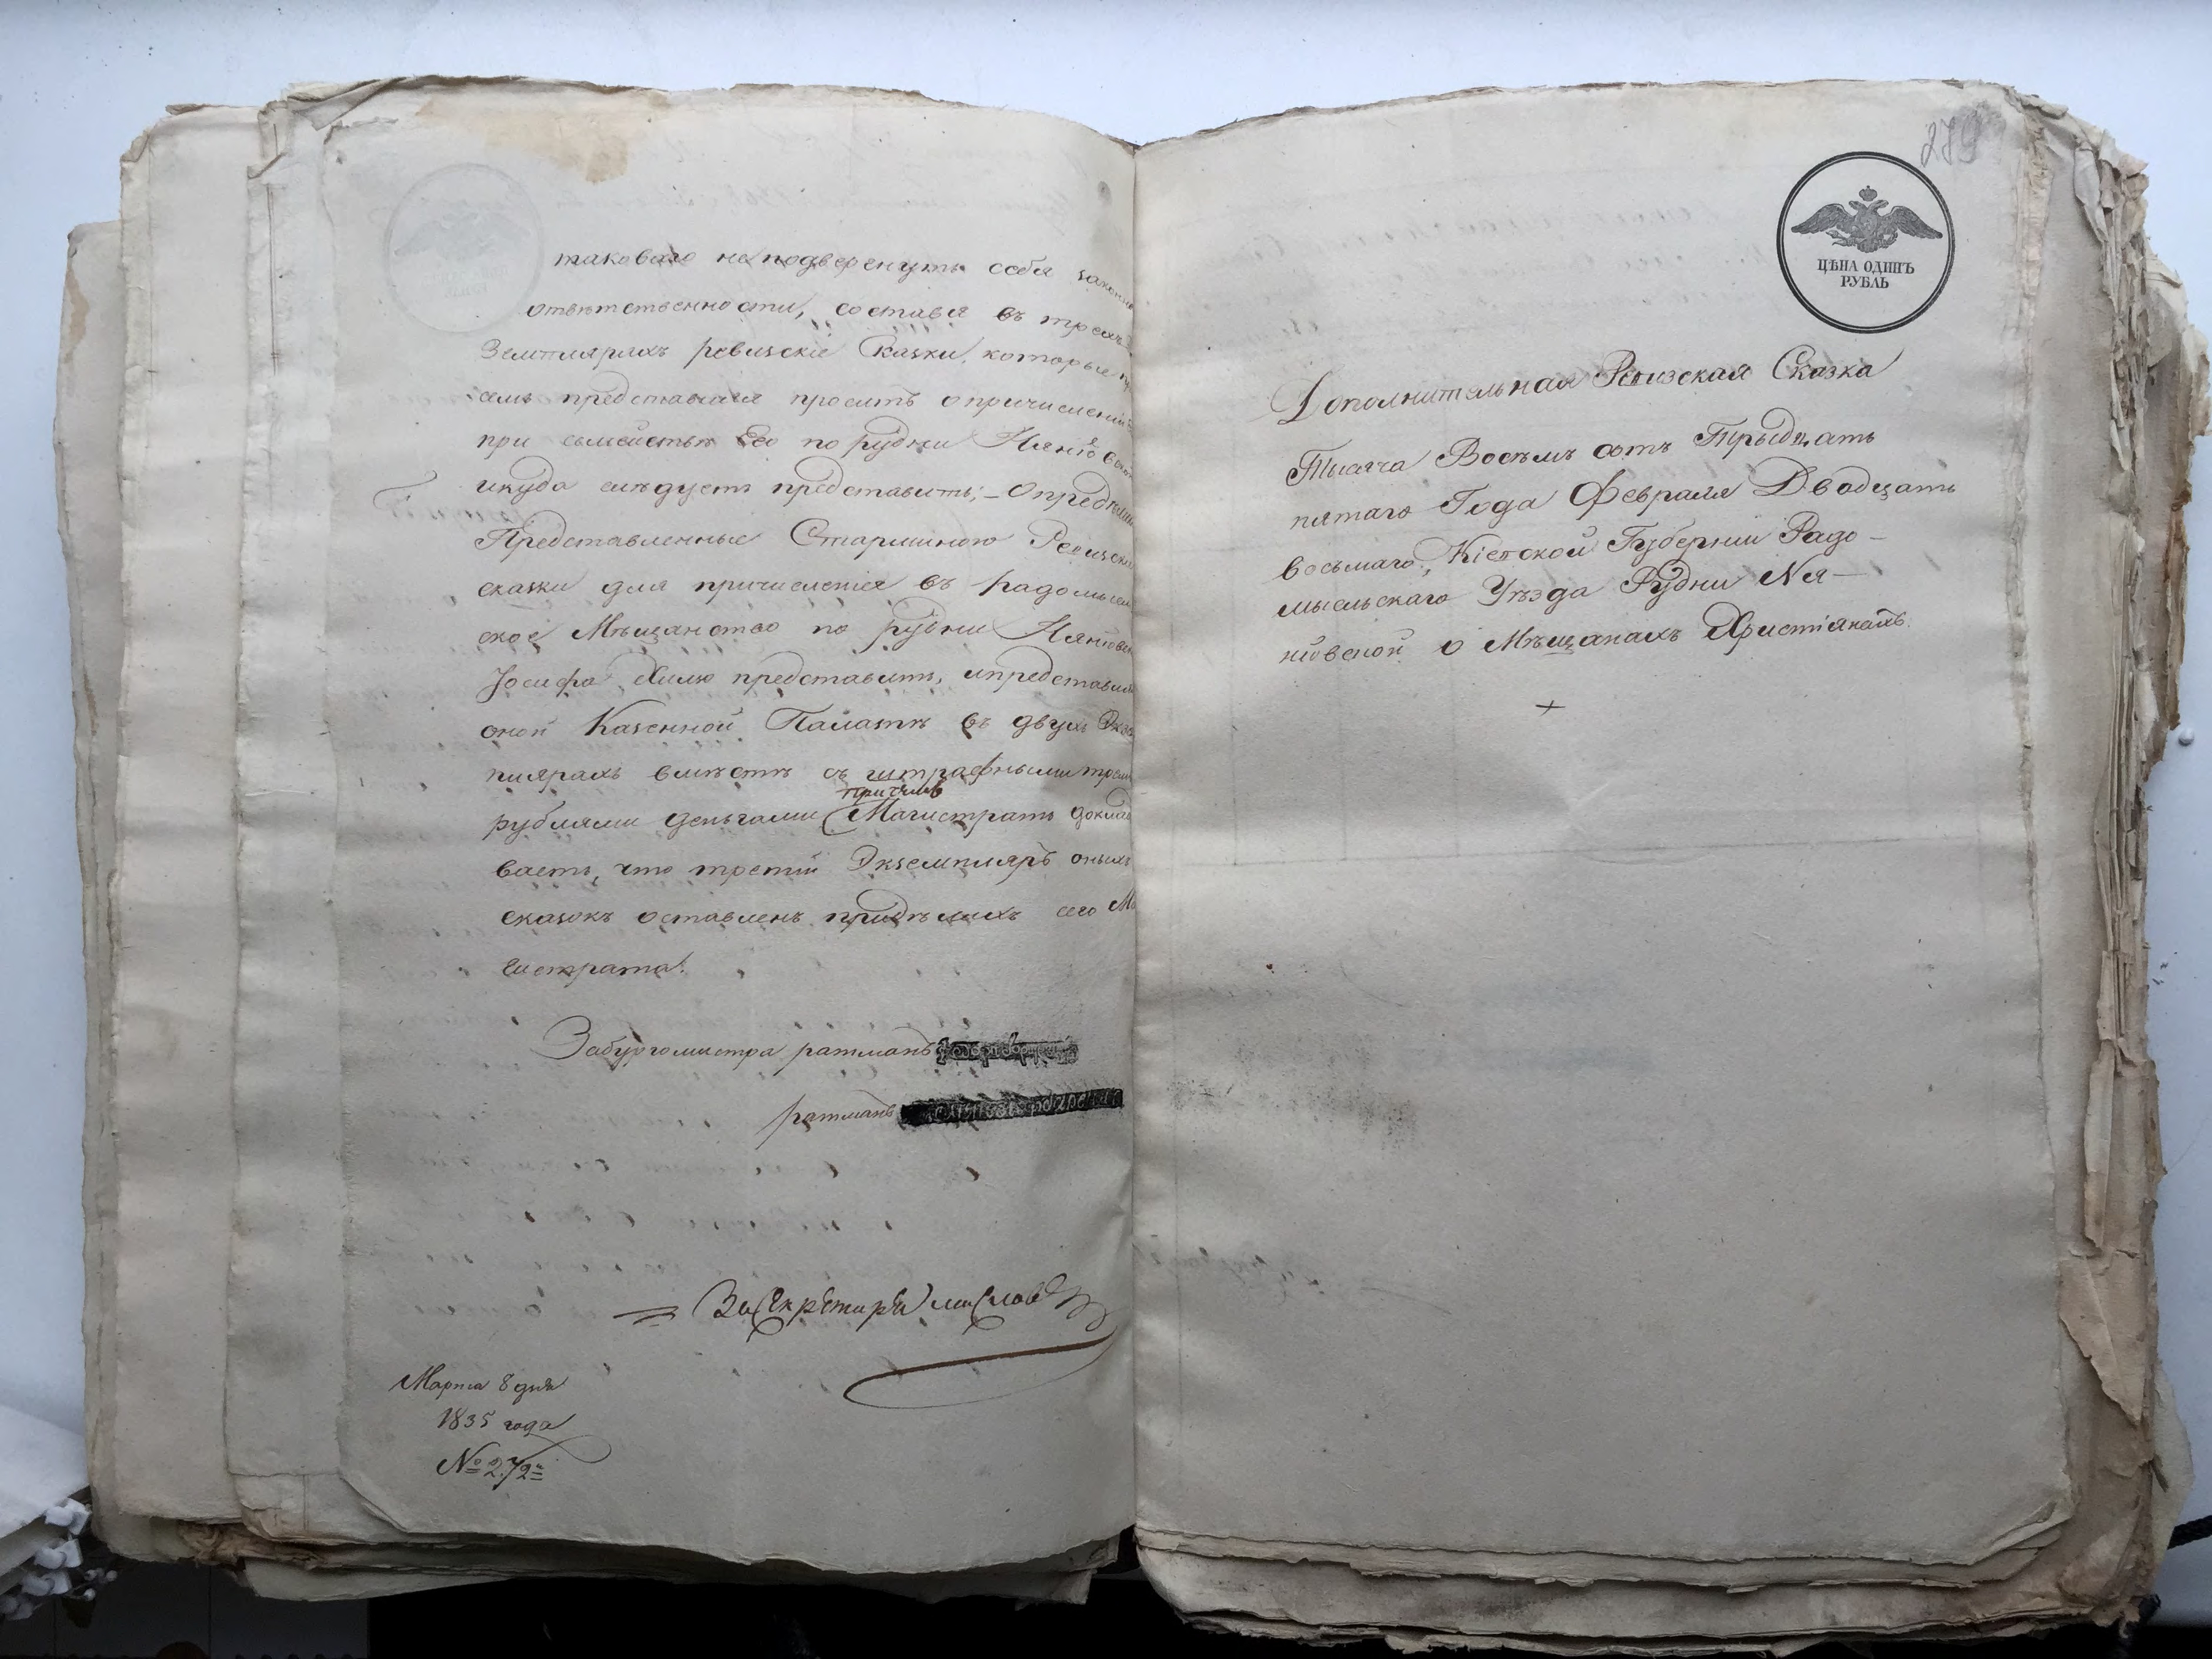 таковаго неподвергнуть себя законно
отвѣтственности, составя въ трехъ
Земплярахъ ревизскіе Сказки, которые
семъ представляя просить опричисленіи
при сѣмействѣ Его по рудни Няніов
икуда слѣдуетъ представить; – Опредѣлили
Представленные Старшиною Ревизски
сказки для причисленія въ радомысл
ское Мѣщанство по рудни Няніовс
Іосифа Хилю представить, ипредставил
оной Казенной Палатѣ въ двухъ Экзе
плярахъ вмѣстѣ съ штрафными
причемъ
рублями деньгами Магистратъ доклад
ваетъ, что третій Экземпляръ оныхъ
сказокъ оставленъ придѣлахъ сего Ма
гистрата.
Забургомистра ратманъ
ратманъ
Засекретаря Маслов
Марта 8 дня
1835 года
№ 272
279
ЦѢНА ОДИНЪ
РУБЛЬ
Дополнительная Ревизская Сказка
Тысяча Восѣмъ сотъ Трыдцать
пятаго Года Февраля Двадцать
восьмаго, Кіевской Губерніи Радо-
мысльскаго Уѣзда Рудни Ня-
ніовской о Мѣщанахъ Христіянахъ.